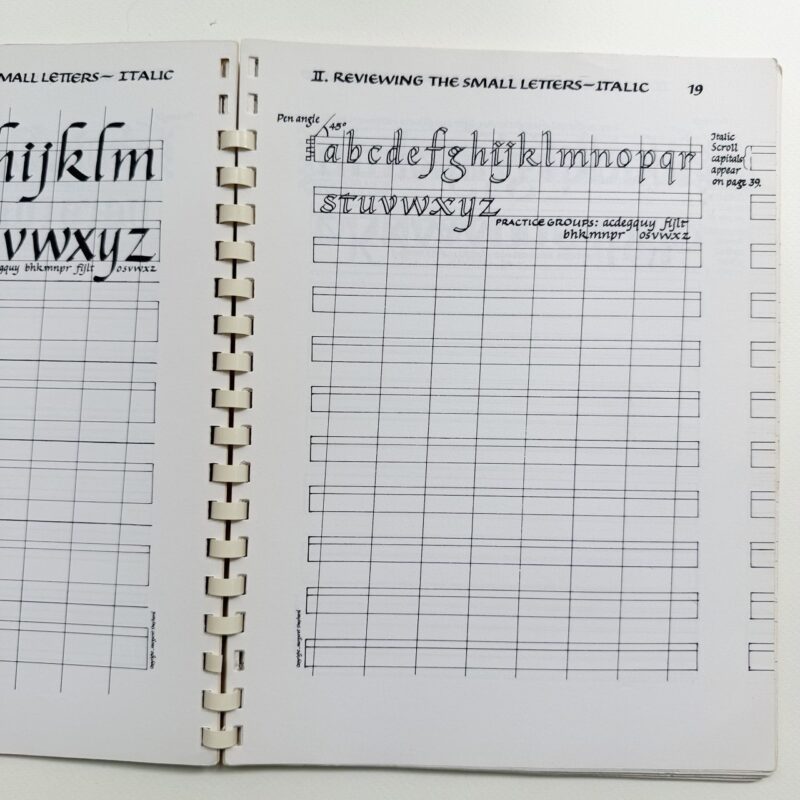 MALL LETTERS— ITALIC
hijklm
vwxyz
gquy bhkmnpr fijlt osvwxz
Copyright, Margaret Shepherd
II. REVIEWING THE SMALL LETTERS—ITALIC 19
Pen angle 45°
abcdefghijklmnopqr
stuvwxyz
PRACTICE GROUPS: acdegquy fijlt
bhkmnpr osvwxz
Italic
Scroll
capitals
appear
on page 39.
Copyright, Margaret Shepherd